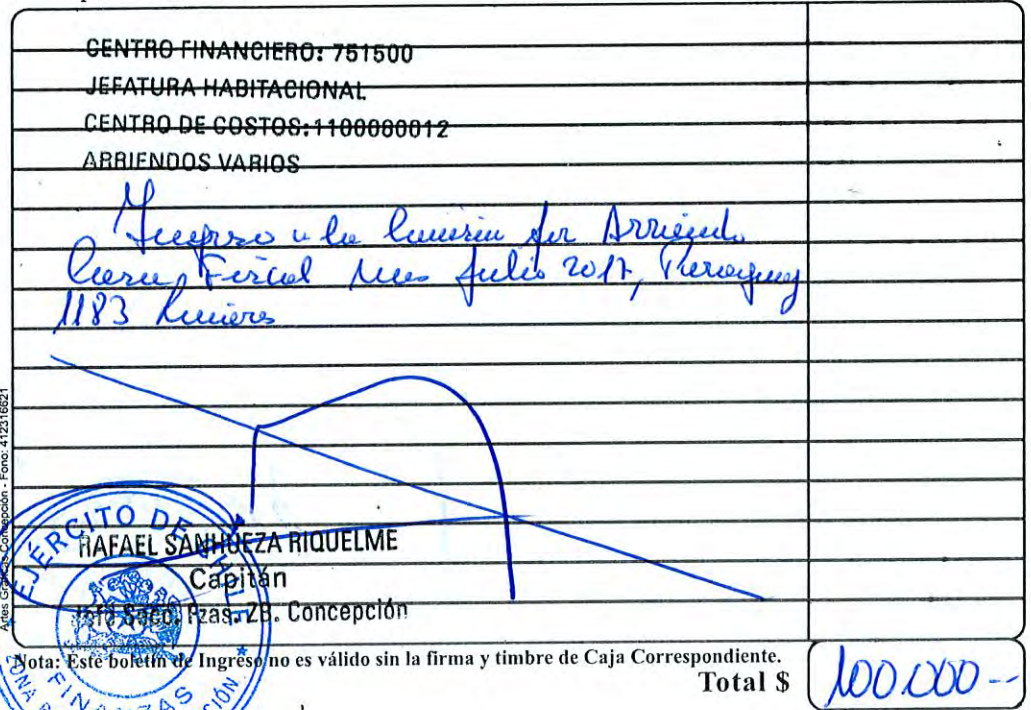 CENTRO FINANCIERO: 751500
JEFATURA HABITACIONAL
CENTRO DE COSTOS: 1100000012
ARRIENDOS VARIOS
Ingreso a la por Arriendo
Casa Fiscal Mes Julio 2017, Paraguay
1183
Artes Gráficas Concepción - Fono: 412316621
EJÉRCITO DE CHILE
RAFAEL SANHUEZA RIQUELME
Capitán
Concepción
Nota: Este boletín de Ingreso no es válido sin la firma y timbre de Caja Correspondiente.
FINANZAS
Total $ 100.000--